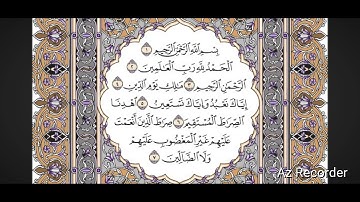 بِسْمِ اللَّهِ الرَّحْمَٰنِ الرَّحِيمِ ١
الْحَمْدُ لِلَّهِ رَبِّ الْعَالَمِينَ ٢
الرَّحْمَٰنِ الرَّحِيمِ ٣ مَالِكِ يَوْمِ الدِّينِ ٤
إِيَّاكَ نَعْبُدُ وَإِيَّاكَ نَسْتَعِينُ ٥ اهْدِنَا
الصِّرَاطَ الْمُسْتَقِيمَ ٦ صِرَاطَ الَّذِينَ أَنْعَمْتَ
عَلَيْهِمْ غَيْرِ الْمَغْضُوبِ عَلَيْهِمْ
وَلَا الضَّالِّينَ ٧
Az Recorder